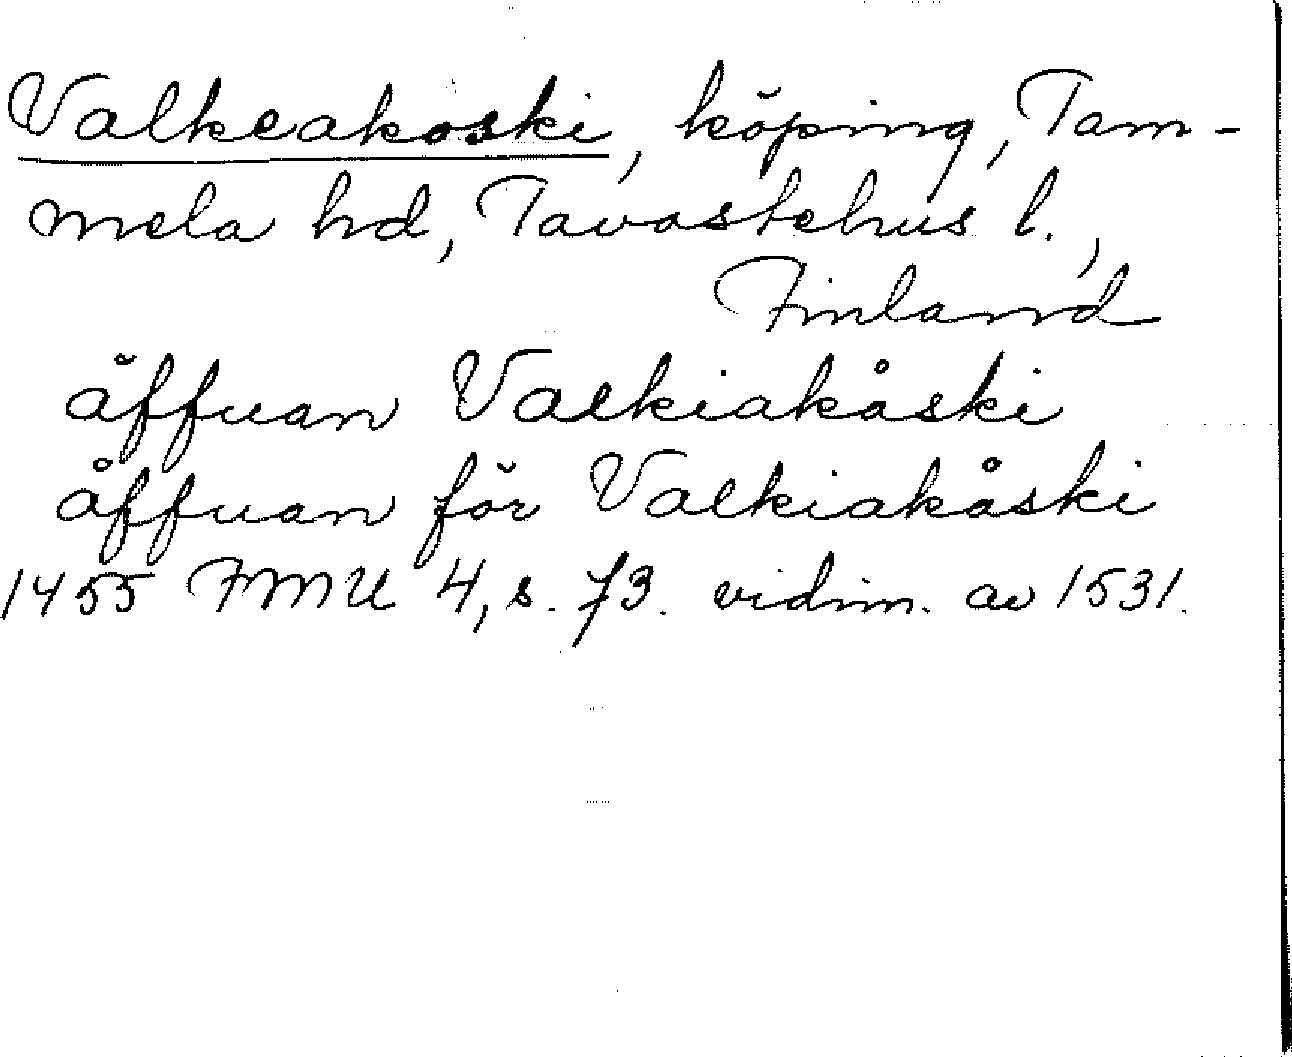 Valkeakoski, köping, Tam-
mela hd, Tavastehus l.,
Finland
äffuan Valkiakåski
åffuan för Valkiakåski
1455 FMU 4, s. 73. vidim. av 1531.